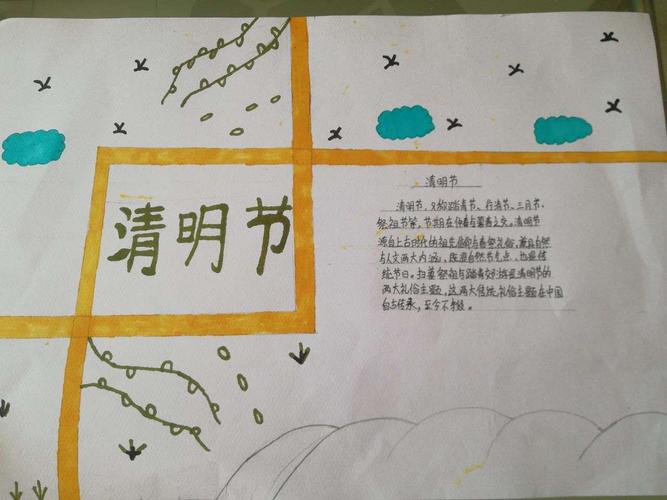 清明节
清明节
清明节，又称踏青节、行清节、三月节、
祭祖节等，节期在仲春与暮春之交。清明节
源自上古时代的祖先信仰与春祭礼俗，兼具自然
与人文两大内涵，既是自然节气点，也是传
统节日。扫墓祭祖与踏青郊游是清明节的
两大礼俗主题，这两大传统礼俗主题在中国
自古传承，至今不辍。